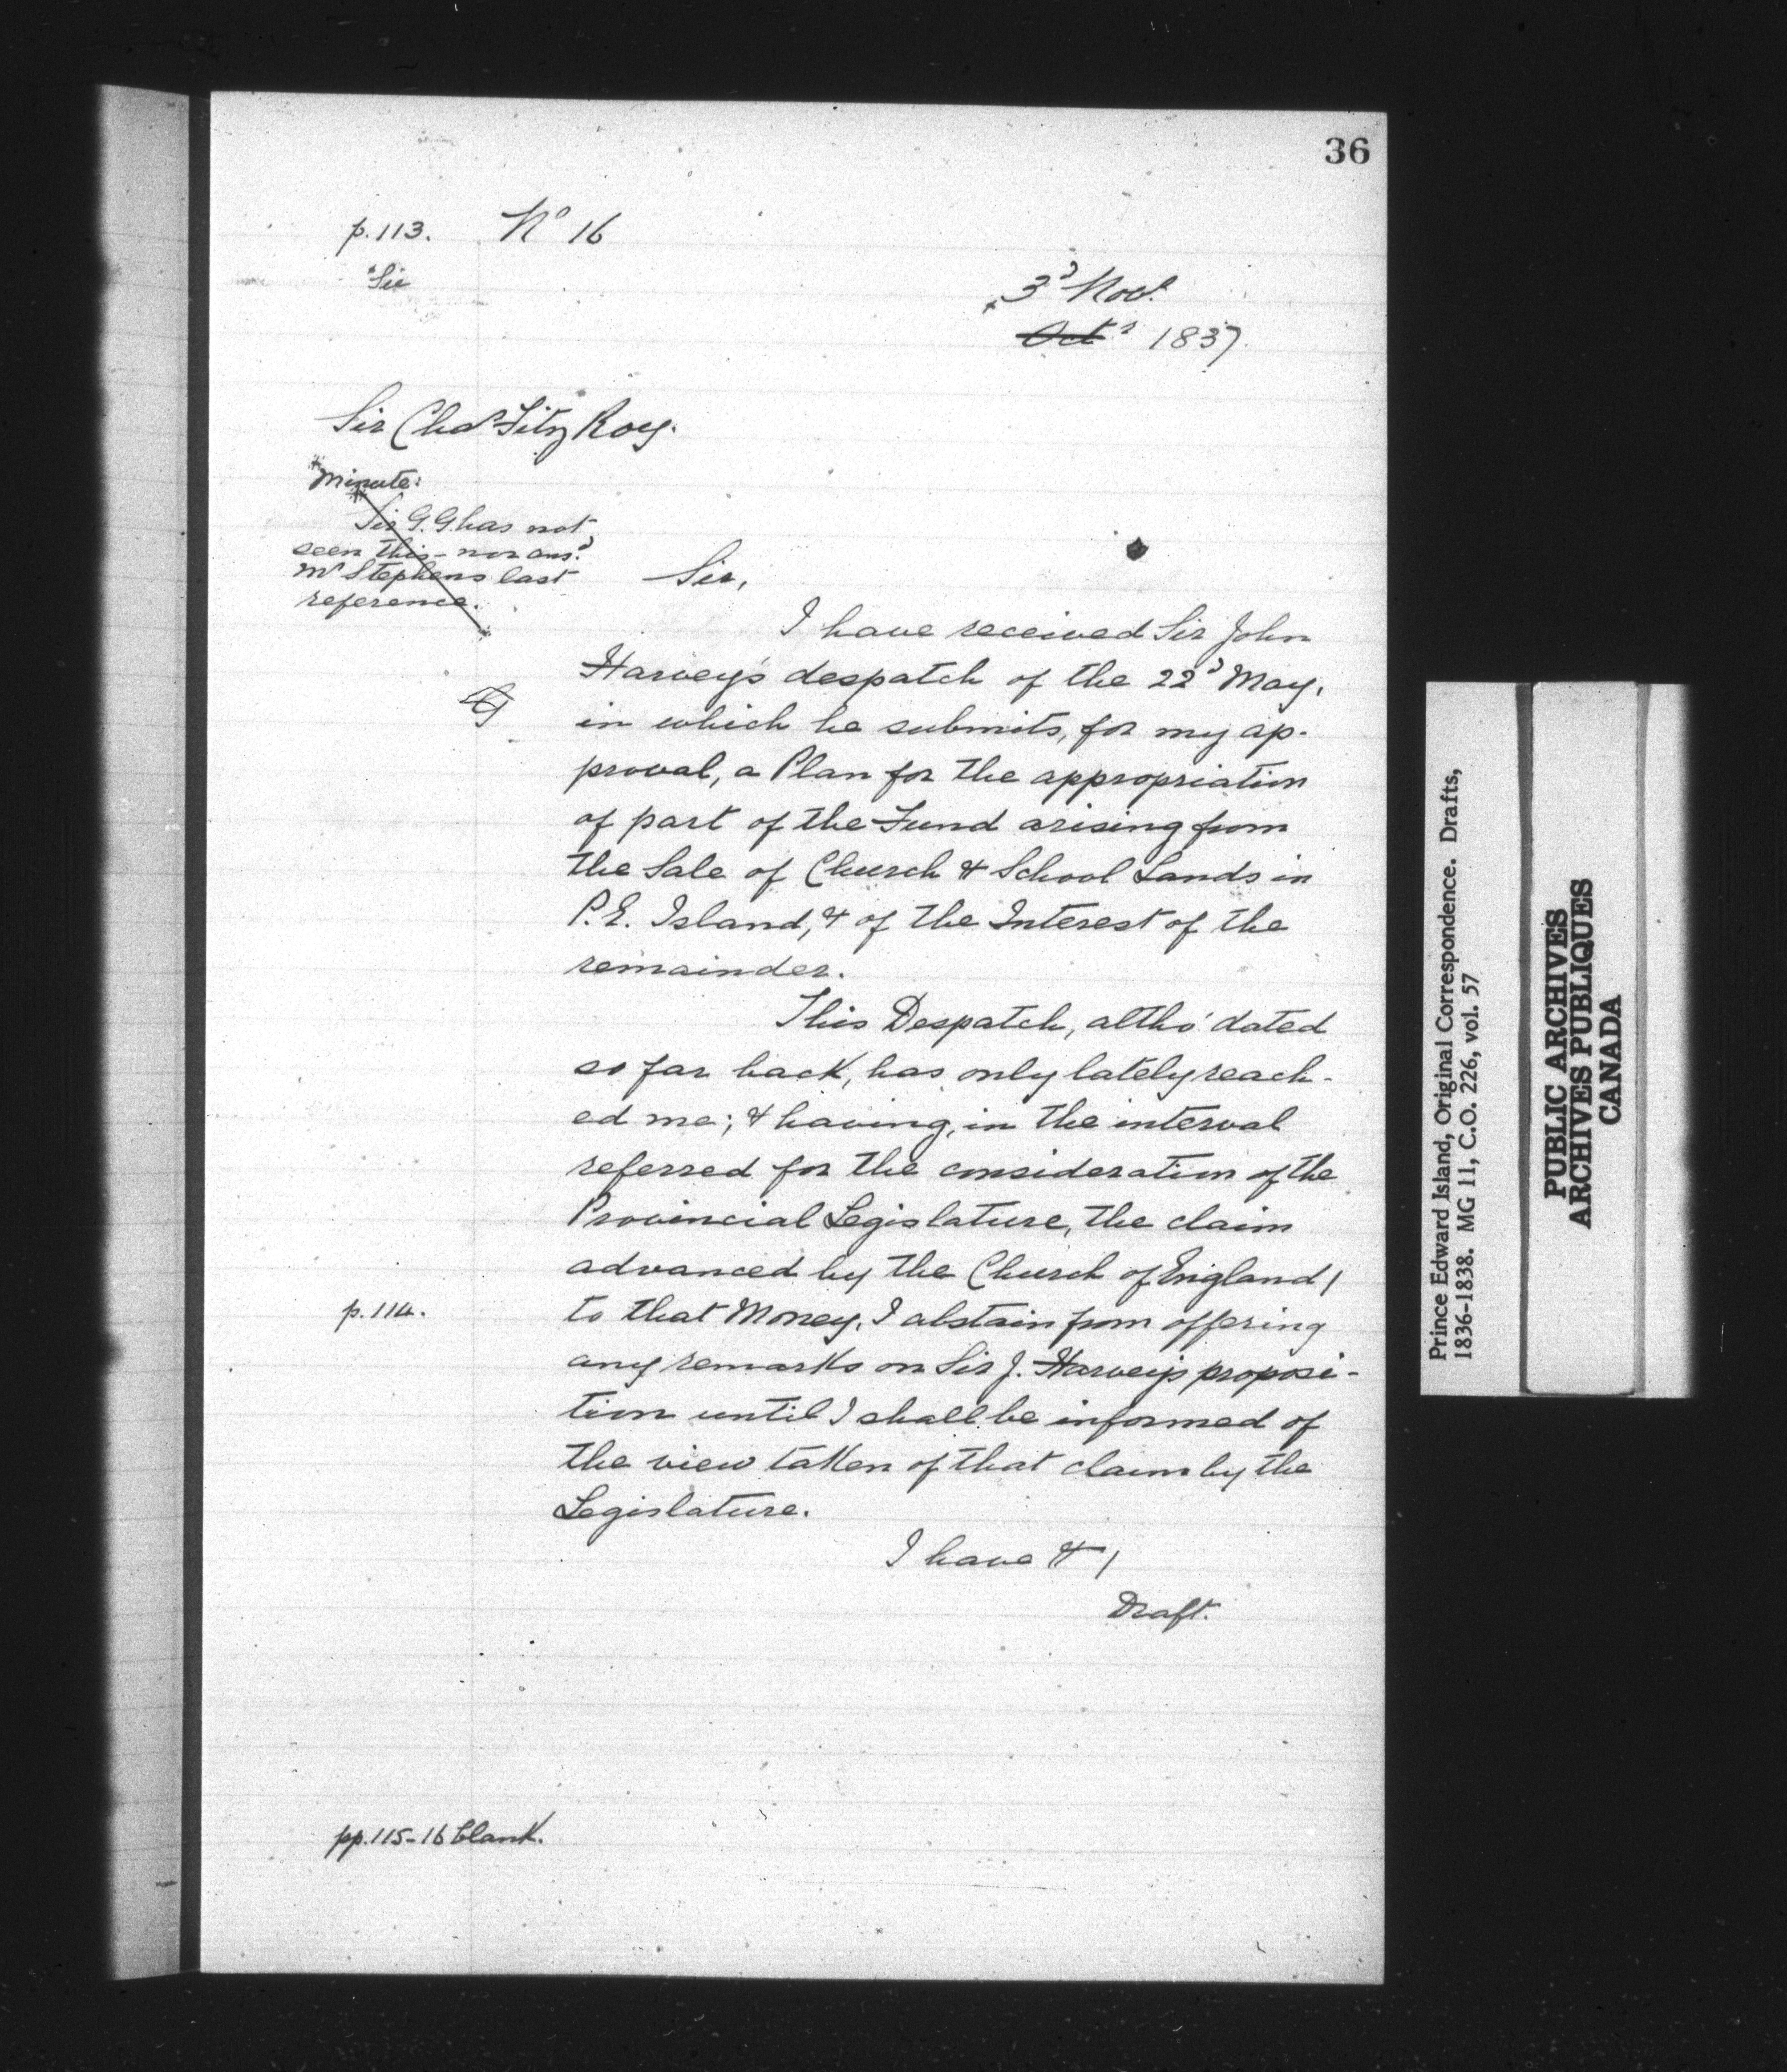 36
p. 113. Nº 16
Sir
3d Novr
Octr 1837.
Sir Chas FitzRoy.
Minute:
Sir G. G. has not
seen this - nor ansd
Mr Stephens last
reference.
Sir,
I have received Sir John
Harvey's despatch of the 22d May,
in which he submits, for my ap-
proval, a Plan for the appropriation
of part of the Fund arising from
the Sale of Church & School Lands in
P.E. Island, & of the Interest of the
remainder.
This Despatch, altho' dated
so far back, has only lately reach-
ed me; & having, in the interval
referred for the consideration of the
Provincial Legislature, the claim
advanced by the Church of England /
p. 114.
to that Money, I abstain from offering
any remarks on Sir J. Harvey's proposi-
tion until I shall be informed of
the view taken of that claim by the
Legislature.
I have & /
Draft.
pp. 115-16 blank.
Prince Edward Island, Original Correspondence. Drafts,
1836-1838. MG 11, C.O. 226, vol. 57
PUBLIC ARCHIVES
ARCHIVES PUBLIQUES
CANADA